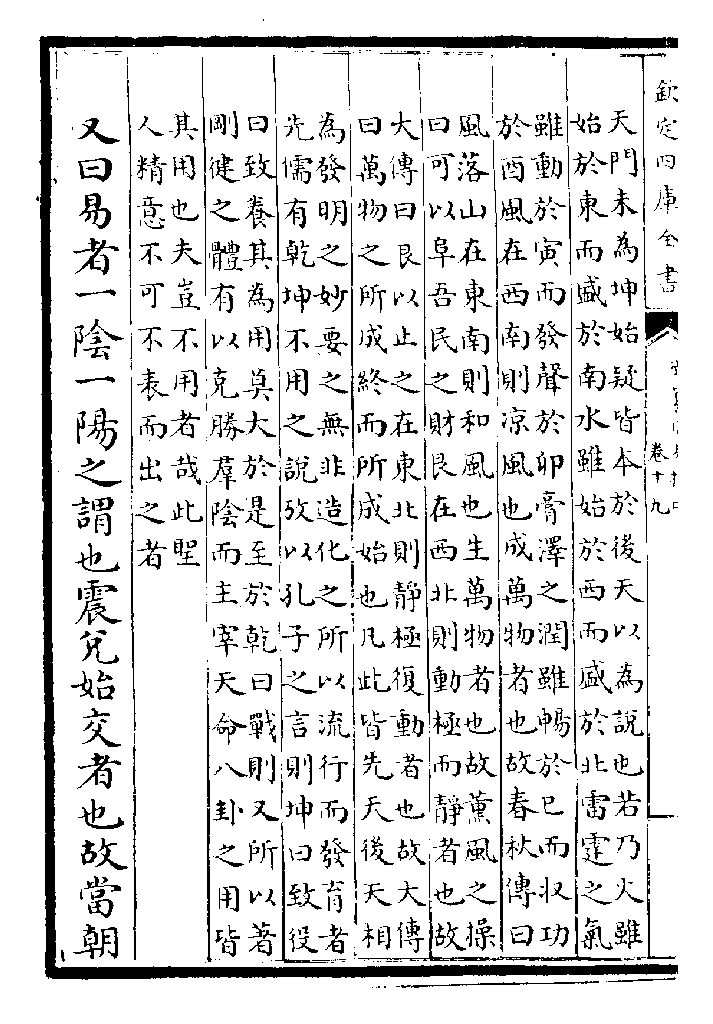 欽定四庫全書
卷十九
天門未為坤始疑皆本於後天以為說也若乃火雖
始於東而盛於南水雖始於西而盛於北雷霆之氣
雖動於寅而發聲於卯膏澤之潤雖暢於巳而収功
於酉風在西南則凉風也成萬物者也故春秋傳曰
風落山在東南則和風也生萬物者也故薰風之操
曰可以阜吾民之財艮在西北則動極而靜者也故
大傳曰艮以止之在東北則靜極復動者也故大傳
曰萬物之所成終而所成始也凡此皆先天後天相
為發明之妙要之無非造化之所以流行而發育者
先儒有乾坤不用之說攷以孔子之言則坤曰致役
曰致養其為用莫大於是至於乾曰戰則又所以著
剛健之體有以克勝羣陰而主宰天命八卦之用皆
其用也夫豈不用者哉此聖
人精意不可不表而出之者
又曰易者一陰一陽之謂也震兌始交者也故當朝